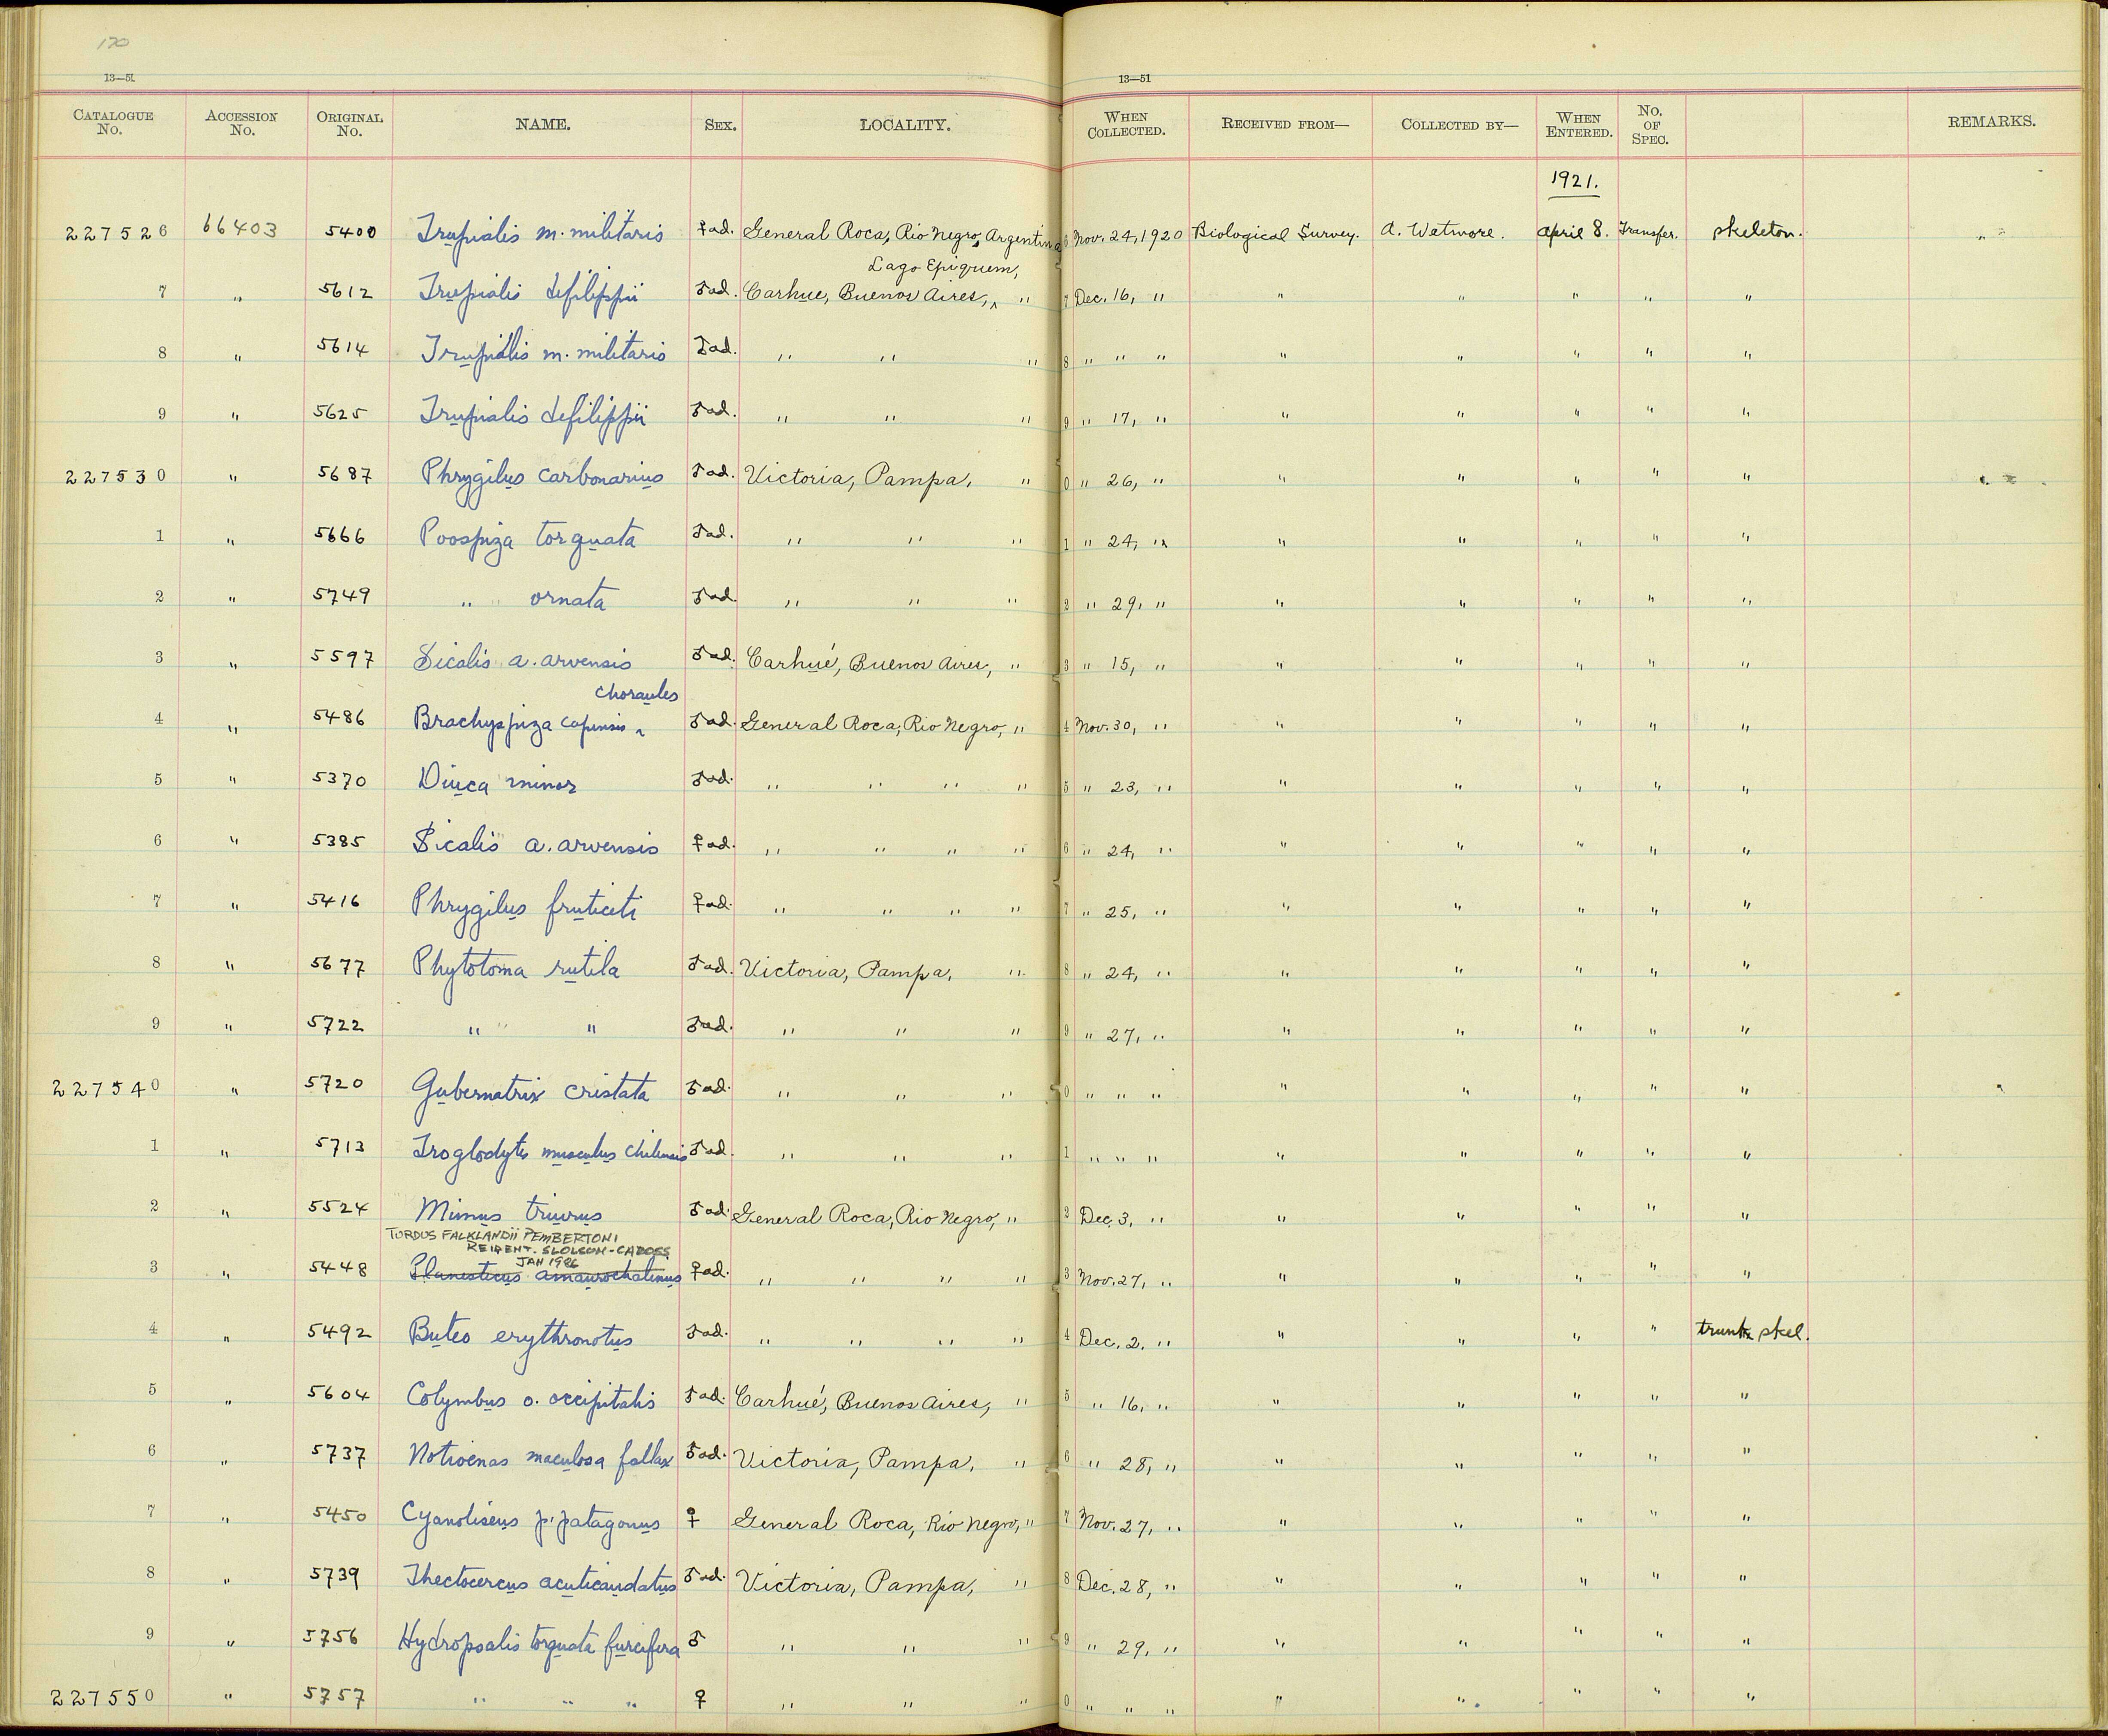 170
13—51.
13—51
CATALOGUE No. ACCESSION No. ORIGINAL No. NAME. SEX. LOCALITY. WHEN COLLECTED. RECEIVED FROM— COLLECTED BY— WHEN ENTERED. No. OF SPEC. REMARKS.
1921.
227526 66403 5400 Trupialis m. militaris ♀ad. General Roca, Rio Negro, Argentina 6 Nov. 24, 1920 Biological Survey. A. Wetmore. April 8. Transfer. skeleton.
Lago Epiquem,
7 " 5612 Trupialis defilippii ♂ad. Carhue, Buenos Aires, ^ " 7 Dec. 16, " " " " " "
8 " 5614 Trupialis m. militaris ♂ad. " " " 8 " " " " " " " "
9 " 5625 Trupialis defilippii ♂ad. " " " 9 " 17, " " " " " "
227530 " 5687 Phrygilus carbonarius ♂ad. Victoria, Pampa, " 0 " 26, " " " " " "
1 " 5666 Poospiza torquata ♂ad. " " " 1 " 24, " " " " " "
2 " 5749 " ornata ♂ad. " " " 2 " 29, " " " " " "
3 " 5597 Sicalis a. arvensis ♂ad. Carhué, Buenos Aires, " 3 " 15, " " " " " "
choraules
4 " 5486 Brachyspiza capensis ^ ♂ad. General Roca, Rio Negro, " 4 Nov. 30, " " " " " "
5 " 5370 Diuca minor ♂ad. " " " " 5 " 23, " " " " " "
6 " 5385 Sicalis a. arvensis ♀ad. " " " " 6 " 24, " " " " " "
7 " 5416 Phrygilus fruticeti ♀ad. " " " " 7 " 25, " " " " " "
8 " 5677 Phytotoma rutila ♂ad. Victoria, Pampa, " 8 " 24, " " " " " "
9 " 5722 " " ♂ad. " " " 9 " 27, " " " " " "
227540 " 5720 Gubernatrix cristata ♂ad. " " " 0 " " " " " " " "
1 " 5713 Troglodytes musculus chilensis ♂ad. " " " 1 " " " " " " " "
2 " 5524 Mimus triurus ♂ad. General Roca, Rio Negro, " 2 Dec. 3, " " " " " "
TURDUS FALKLANDII PEMBERTONI
REIDENT.
JAN 1986
3 " 5448 Planesticus amaurochalinus ♀ad. " " " " 3 Nov. 27, " " " " " "
4 " 5492 Buteo erythronotus ♂ad. " " " " 4 Dec. 2, " " " " " trunk skel.
5 " 5604 Colymbus o. occipitalis ♂ad. Carhué, Buenos Aires, " 5 " 16, " " " " " "
6 " 5737 Notioenas maculosa fallax ♂ad. Victoria, Pampa, " 6 " 28, " " " " " "
7 " 5450 Cyanoliseus p. patagonus ♀ General Roca, Rio Negro, " 7 Nov. 27, " " " " " "
8 " 5739 Thectocercus acuticaudatus ♂ad. Victoria, Pampa, " 8 Dec. 28, " " " " " "
9 " 5756 Hydropsalis torquata furcifera ♂ " " " 9 " 29, " " " " " "
227550 " 5757 " " " ♀ " " " 0 " " " " " " " "